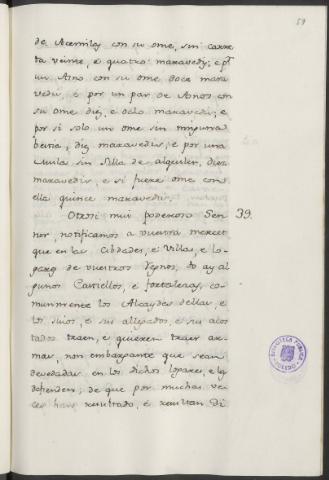 59
de Acemilas con su ome, sin carre
ta veinte, e quatro maravedis; e por
un Asno con su ome doce mara
vedis, e por un par de Asnos con
su ome diez, e ocho maravedis; e
por si solo un ome sin ninguna
bestia, diez maravedis; e por una
Mula sin Silla de alquiler, diez
maravedis, e si fuere ome con
ella quince maravedis.
Otrosi mui poderoso Sen 39.
nor, notificamos a vuestra mercet
que en las Cibdades, e Villas, e lo-
gares de vuestros Regnos, do ay al
gunos Castiellos, e fortalezas, co-
munmente los Alcaydes dellas, e
los suios, e sus allegados, e sus acos
tados traen, e quieren traer ar-
mas, non embargante que sean
devedadas en los dichos logares, e las
defienden; de que por muchas ve-
ces han resultado, e resultan di
BIBLIOTECA PUBLICA TOLEDO